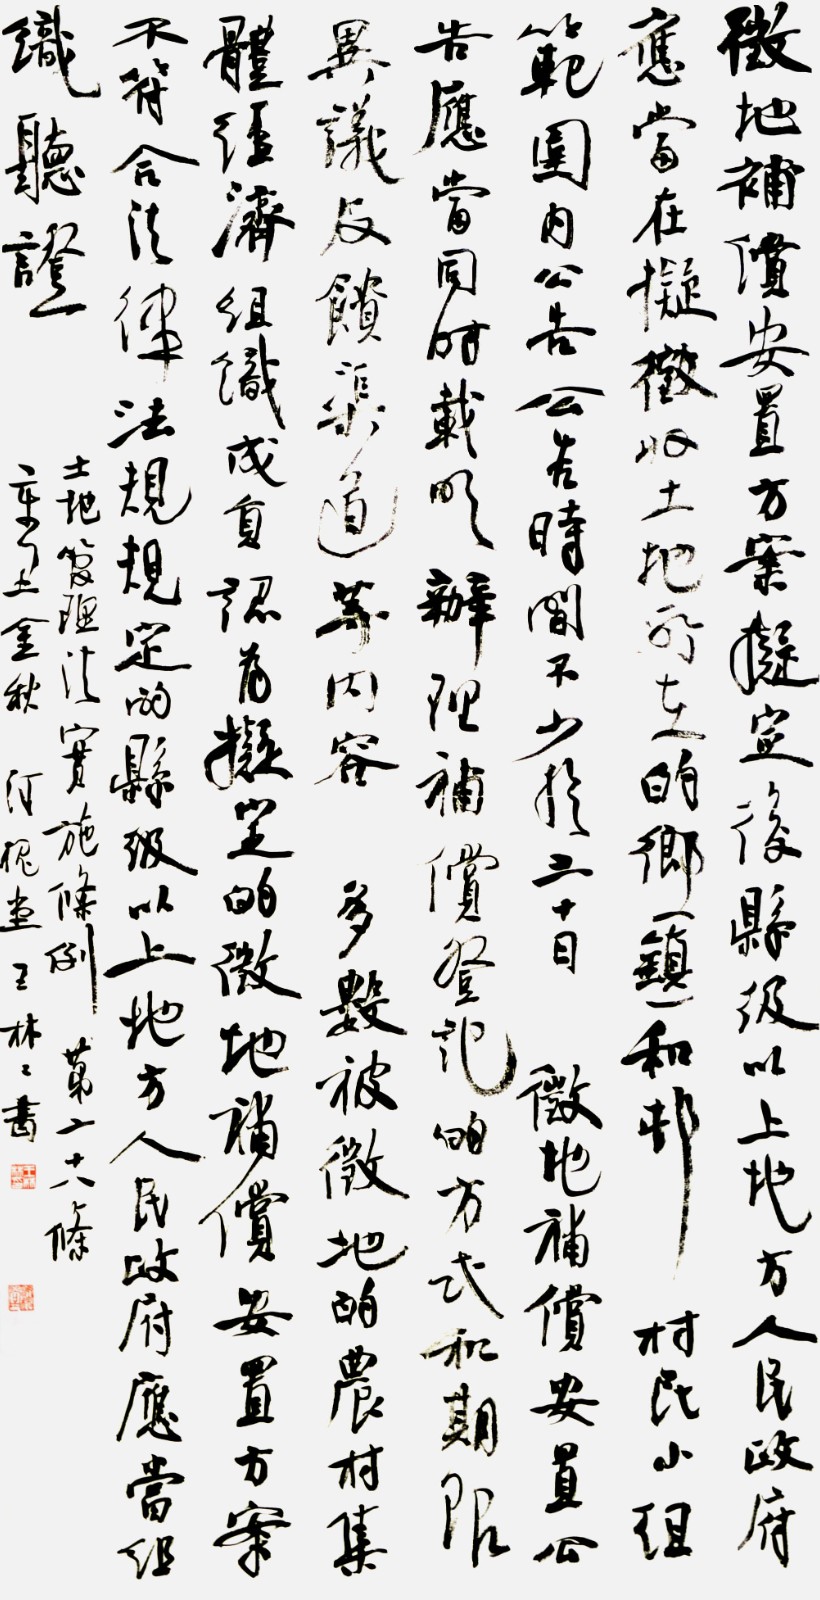 徵地補償安置方案擬定後縣級以上地方人民政府
應當在擬徵收土地所在的鄉(鎮)和邨 村民小組
範圍内公告公告時間不少於三十日 徵地補償安置公
告應當同时載明辦理補償登記的方式和期限
異議反饋渠道等内容 多數被徵地的農村集
體經濟組織成員認爲擬定的徵地補償安置方案
不符合法律法規規定的縣級以上地方人民政府應當組
織聽證
土地管理法實施條例 第二十八條
辛丑金秋 王林之書